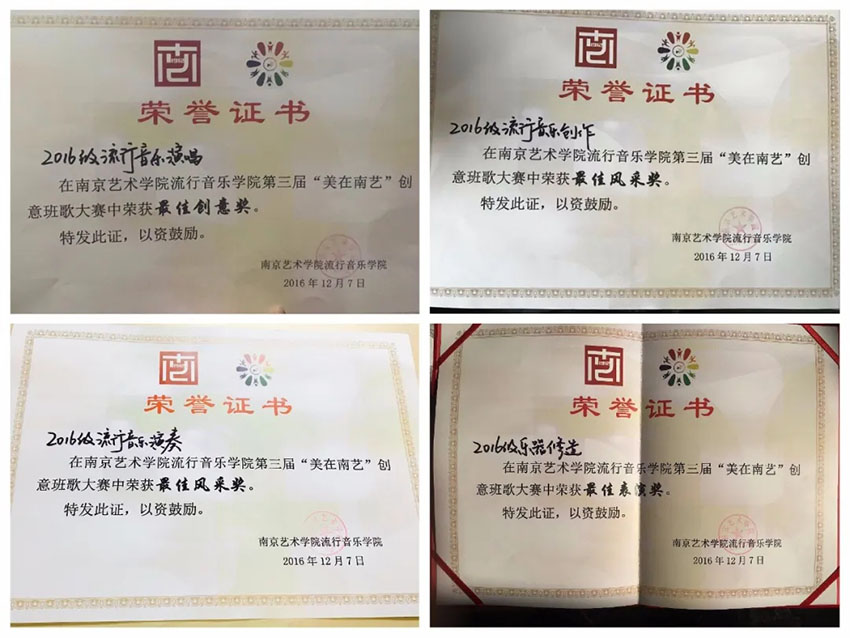 荣誉证书
2016级流行音乐演唱
在南京艺术学院流行音乐学院第三届“美在南艺”创
意班歌大赛中荣获最佳创意奖。
特发此证，以资鼓励。
南京艺术学院流行音乐学院
2016年12月7日
荣誉证书
2016级流行音乐创作
在南京艺术学院流行音乐学院第三届“美在南艺”创
意班歌大赛中荣获最佳风采奖。
特发此证，以资鼓励。
南京艺术学院流行音乐学院
2016年12月7日
荣誉证书
2016级流行音乐演奏
在南京艺术学院流行音乐学院第三届“美在南艺”创
意班歌大赛中荣获最佳风采奖。
特发此证，以资鼓励。
南京艺术学院流行音乐学院
2016年12月7日
荣誉证书
2016级乐器修造
在南京艺术学院流行音乐学院第三届“美在南艺”创
意班歌大赛中荣获最佳表演奖。
特发此证，以资鼓励。
南京艺术学院流行音乐学院
2016年12月7日